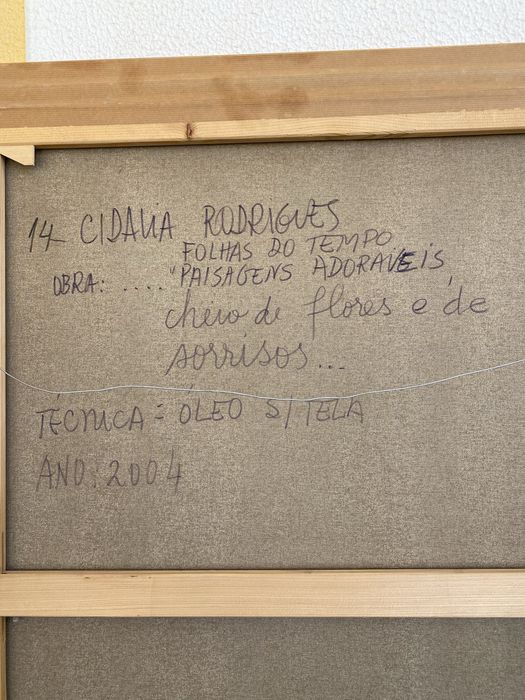 14 CIDALIA RODRIGUES
FOLHAS DO TEMPO
OBRA: .... "PAISAGENS ADORAVEIS,
cheio de flores e de
sorrisos...
TÉCNICA = ÓLEO S/TELA
ANO: 2004